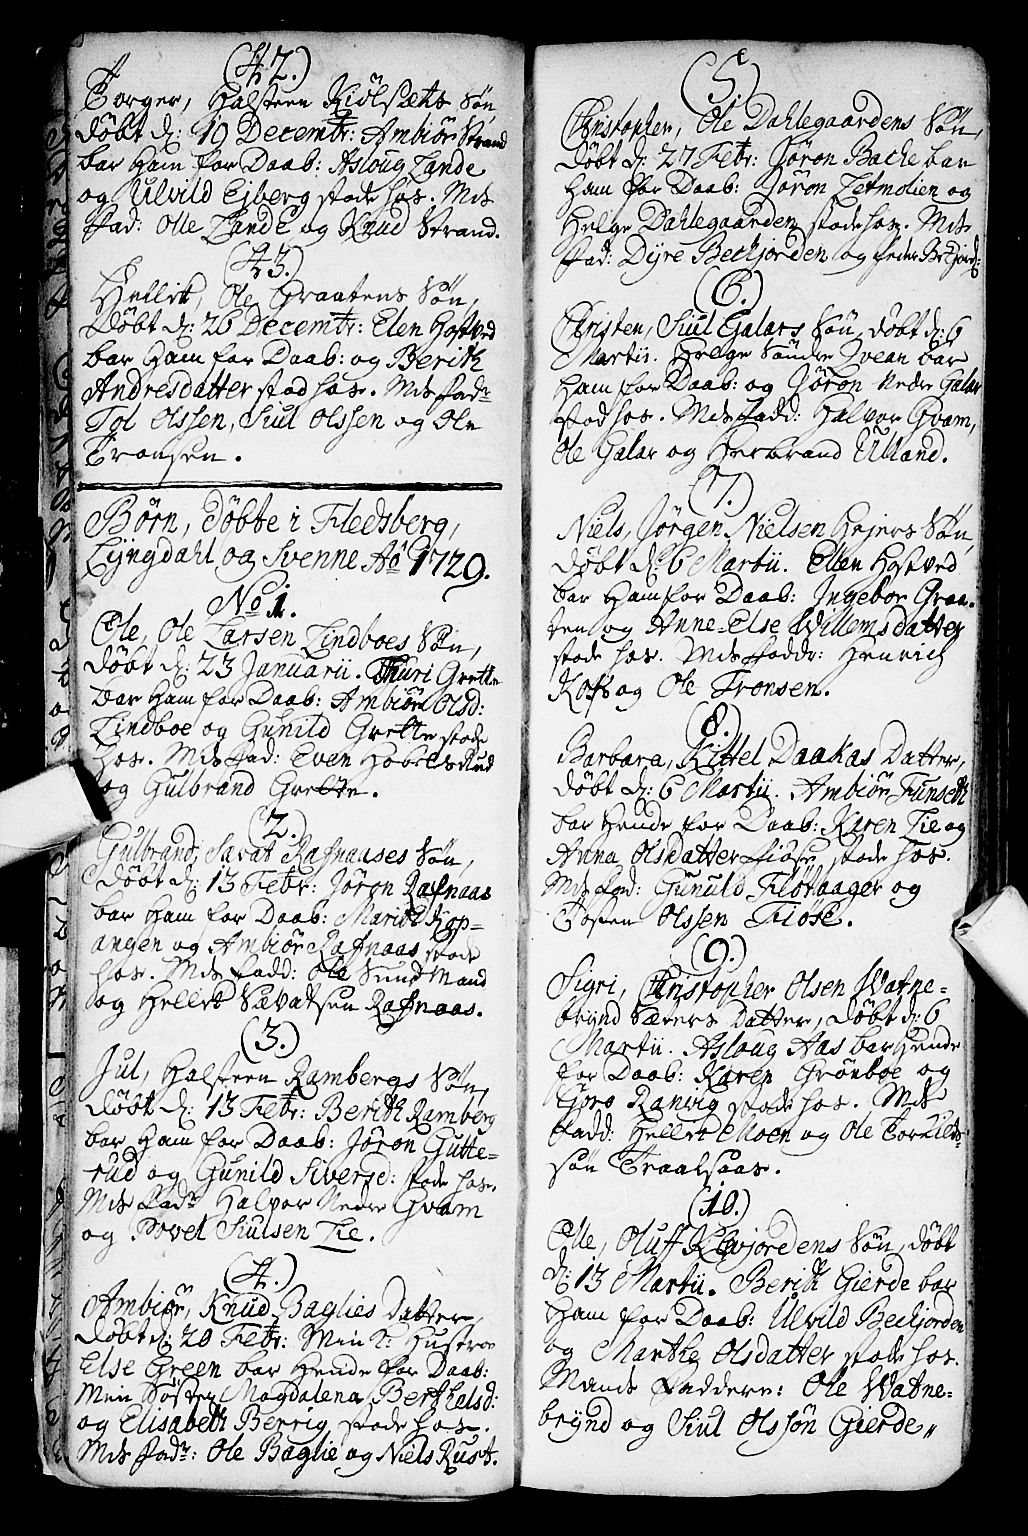 (42.)
Torger, Halsteen Kiölsæts Søn
döbt d: 19 Decembr: Ambiör Strand
bar Ham for Daab: Aslaug Lande
og Ulvild Eiberg stode hos. Mds
fad: Olle Lande og Knud Strand.
(43.)
Hellik, Ole Graatens Søn,
Döbt d: 26 Decembr: Elen Hostved
bar Ham for Daab: og Berith
Andresdatter stod hos. Mds fadr
Tol Olssen, Siul Olssen og Ole
Tronsen.
Børn, Döbte i Fledsberg,
Lyngdahl og Svenne Aō 1729.
No 1.
Ole, Ole Larsen Lindboes Søn,
döbt d: 23 Januarii. Thuri Grette
bar Ham for Daab: Ambiör Olsd:
Lindboe og Gunild Grette stode
hos. Mds fad: Even Hobelsrud
og Gulbrand Grette.
(2.)
Gulbrand, Savat Rafnaases Søn,
Döbt d: 13 Febr: Jøron Rafnaas
bar Ham for Daab: Marit Kop-
angen og Ambiör Rafnaas stode
hos. Mds fadd: Ole Sund Mand
og Hellik Sævatsen Rafnaas.
(3.)
Jul, Halsteen Rambergs Søn,
döbt d: 13 Febr: Berith Ramberg
bar Ham for Daab: Jøron Gutte-
rud og Gunild Siversd: stode hos.
Mds fadr Halvor Nedre Gvam
og Povel Siulsen Lie.
(4.)
Ambiör, Knud Baglies Datter
döbt d: 20 Febr: Min K: Hustroe
Else Green bar Hende for Daab:
Min Søster Magdalena Berthelsd:
og Elisabeth Berrig stode hos.
Mds fadr: Ole Baglie og Niels Rust.
(5.)
Christopher, Ole Dahlegaardens Søn,
döbt d: 27 Febr: Jøron Bache bar
Ham for Daab: Jøron Letmolien og
Helge Dahlegaarden stode hos. Mds
fad: Dyre Beckjorden og Peder Beckjord:
(6.)
Christen, Siul Galars Søn, döbt d: 6
Martii. Helge Søndre Jvean bar
Ham for Daab: og Jøron Nedre Galar
stod hos. Mds fadd: Halvor Gvam,
Ole Galar og Herbrand Ulland.
(7.)
Niels, Jørgen Nielsen Hejers Søn,
döbt d: 6 Martii. Ellen Hostved
bar Ham for Daab: Ingebor Graa-
ten og Anne-Else Willemsdatter
stode hos. Mds faddr: Henrich
Koss og Ole Tronsen.
(8.)
Barbara, Kittel Daakas Datter,
döbt d: 6 Martii. Ambiör Funseth
bar Hende for Daab: Karen Lie og
Anna Olsdatter Fiöse stode hos.
Mds fad: Gunuld Flöthaager og
Tosten Olssen Fiöse.
(9.)
Sigri, Christopher Olsen Watne-
brynd Sæters Datter, döbt d: 6
Martii. Aslaug Aas bar Hende
for Daab: Karen Grönboe og
Goro Ranvig stode hos. Mds
fadd: Hellik Moen og Ole Torkilds-
søn Traalsaas.
(10.)
Olle, Oluff Kevjordens Søn, döbt
d: 13 Martii. Berith Gierde bar
Ham for Daab: Ulvild Beckjorden
og Marthe Olsdatter stode hos.
Mands Faddere: Ole Watne-
brynd og Siul Olssön Gierde,,